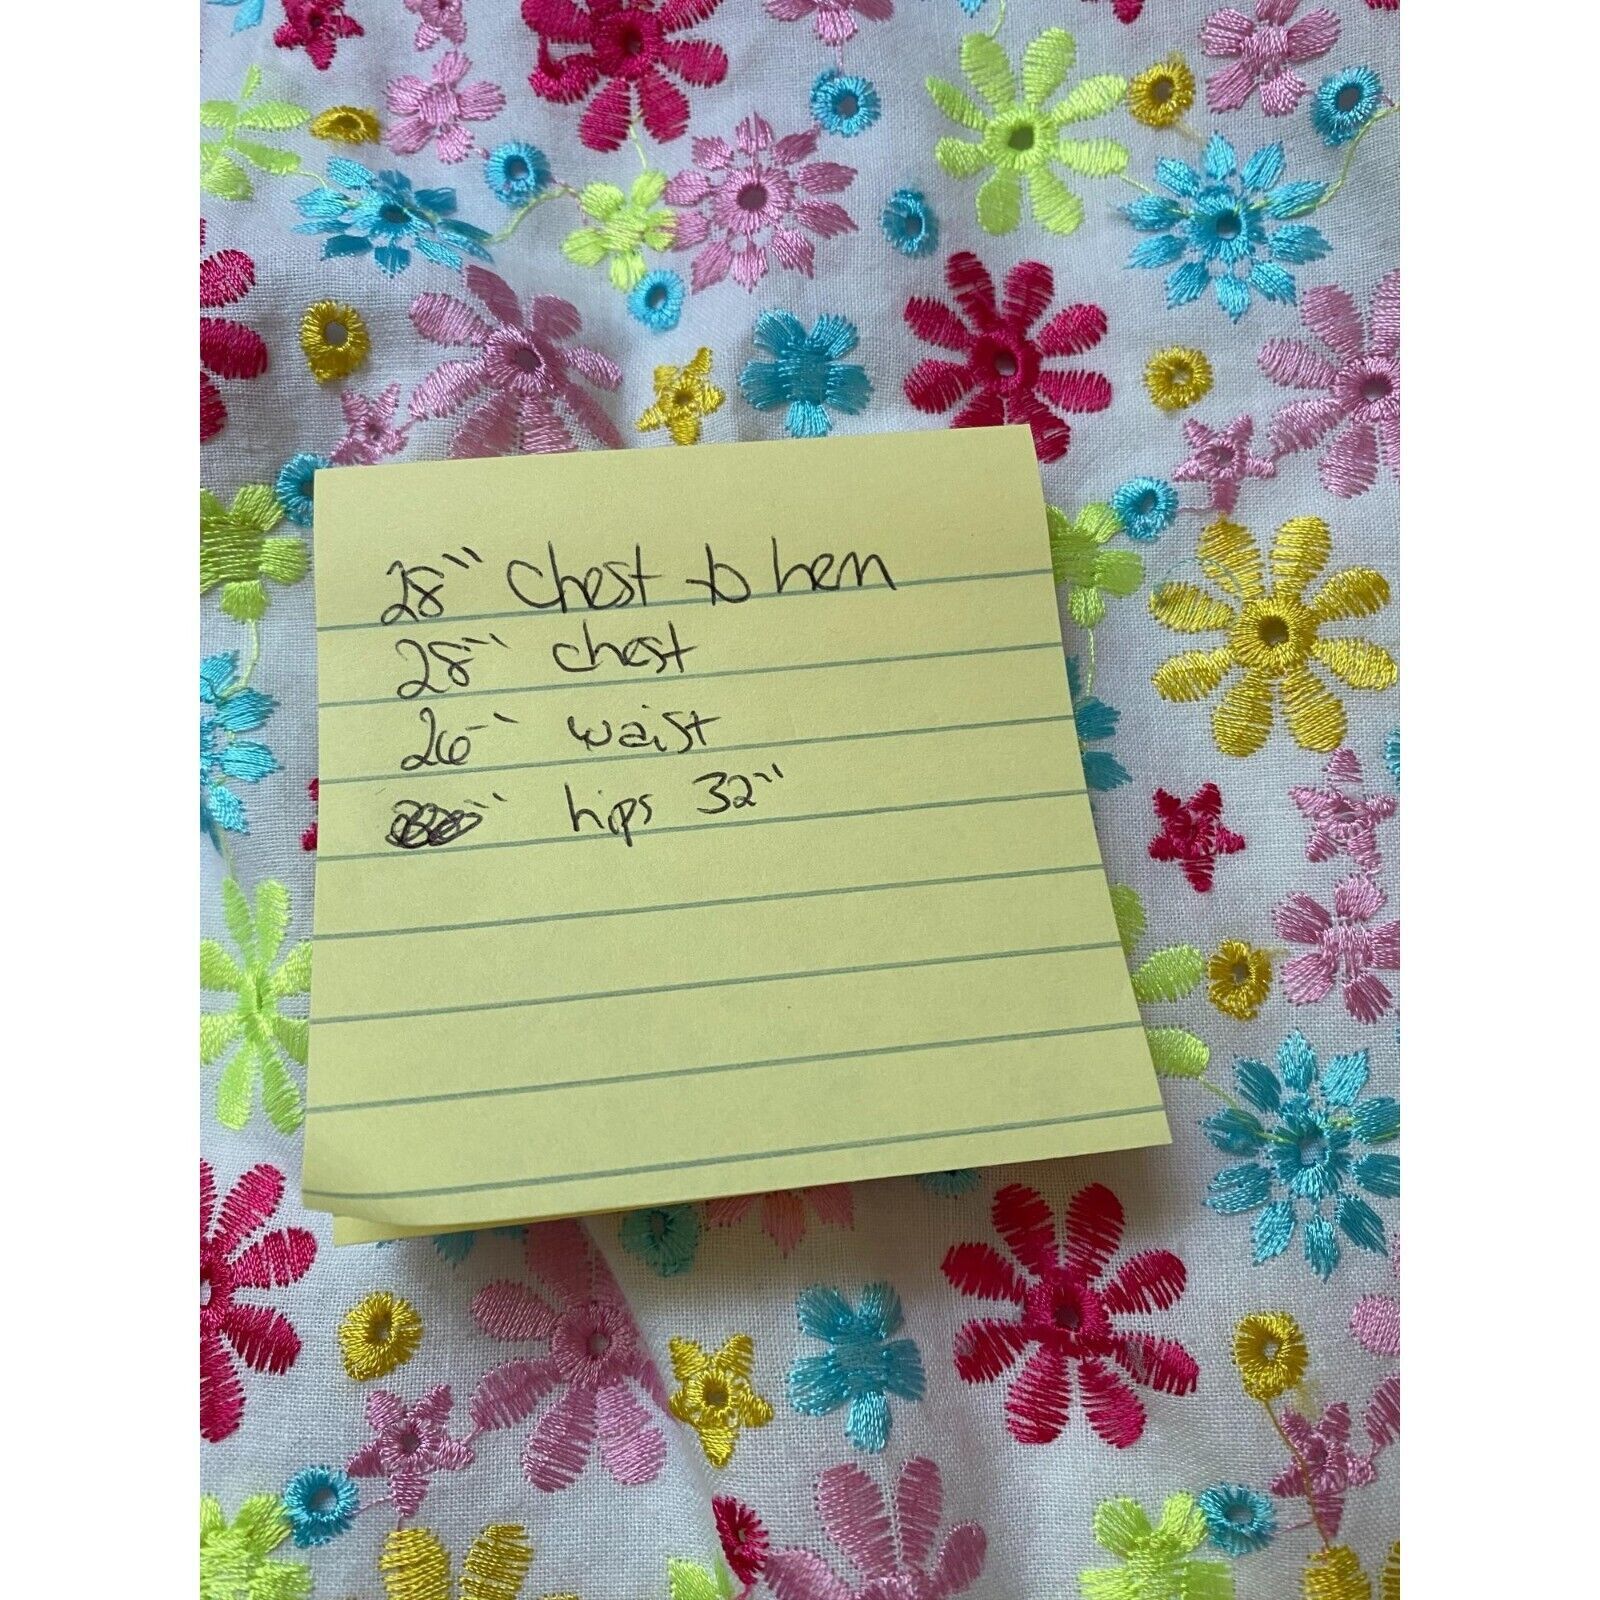 28" chest to hem
28" chest
26" waist
" hips 32"